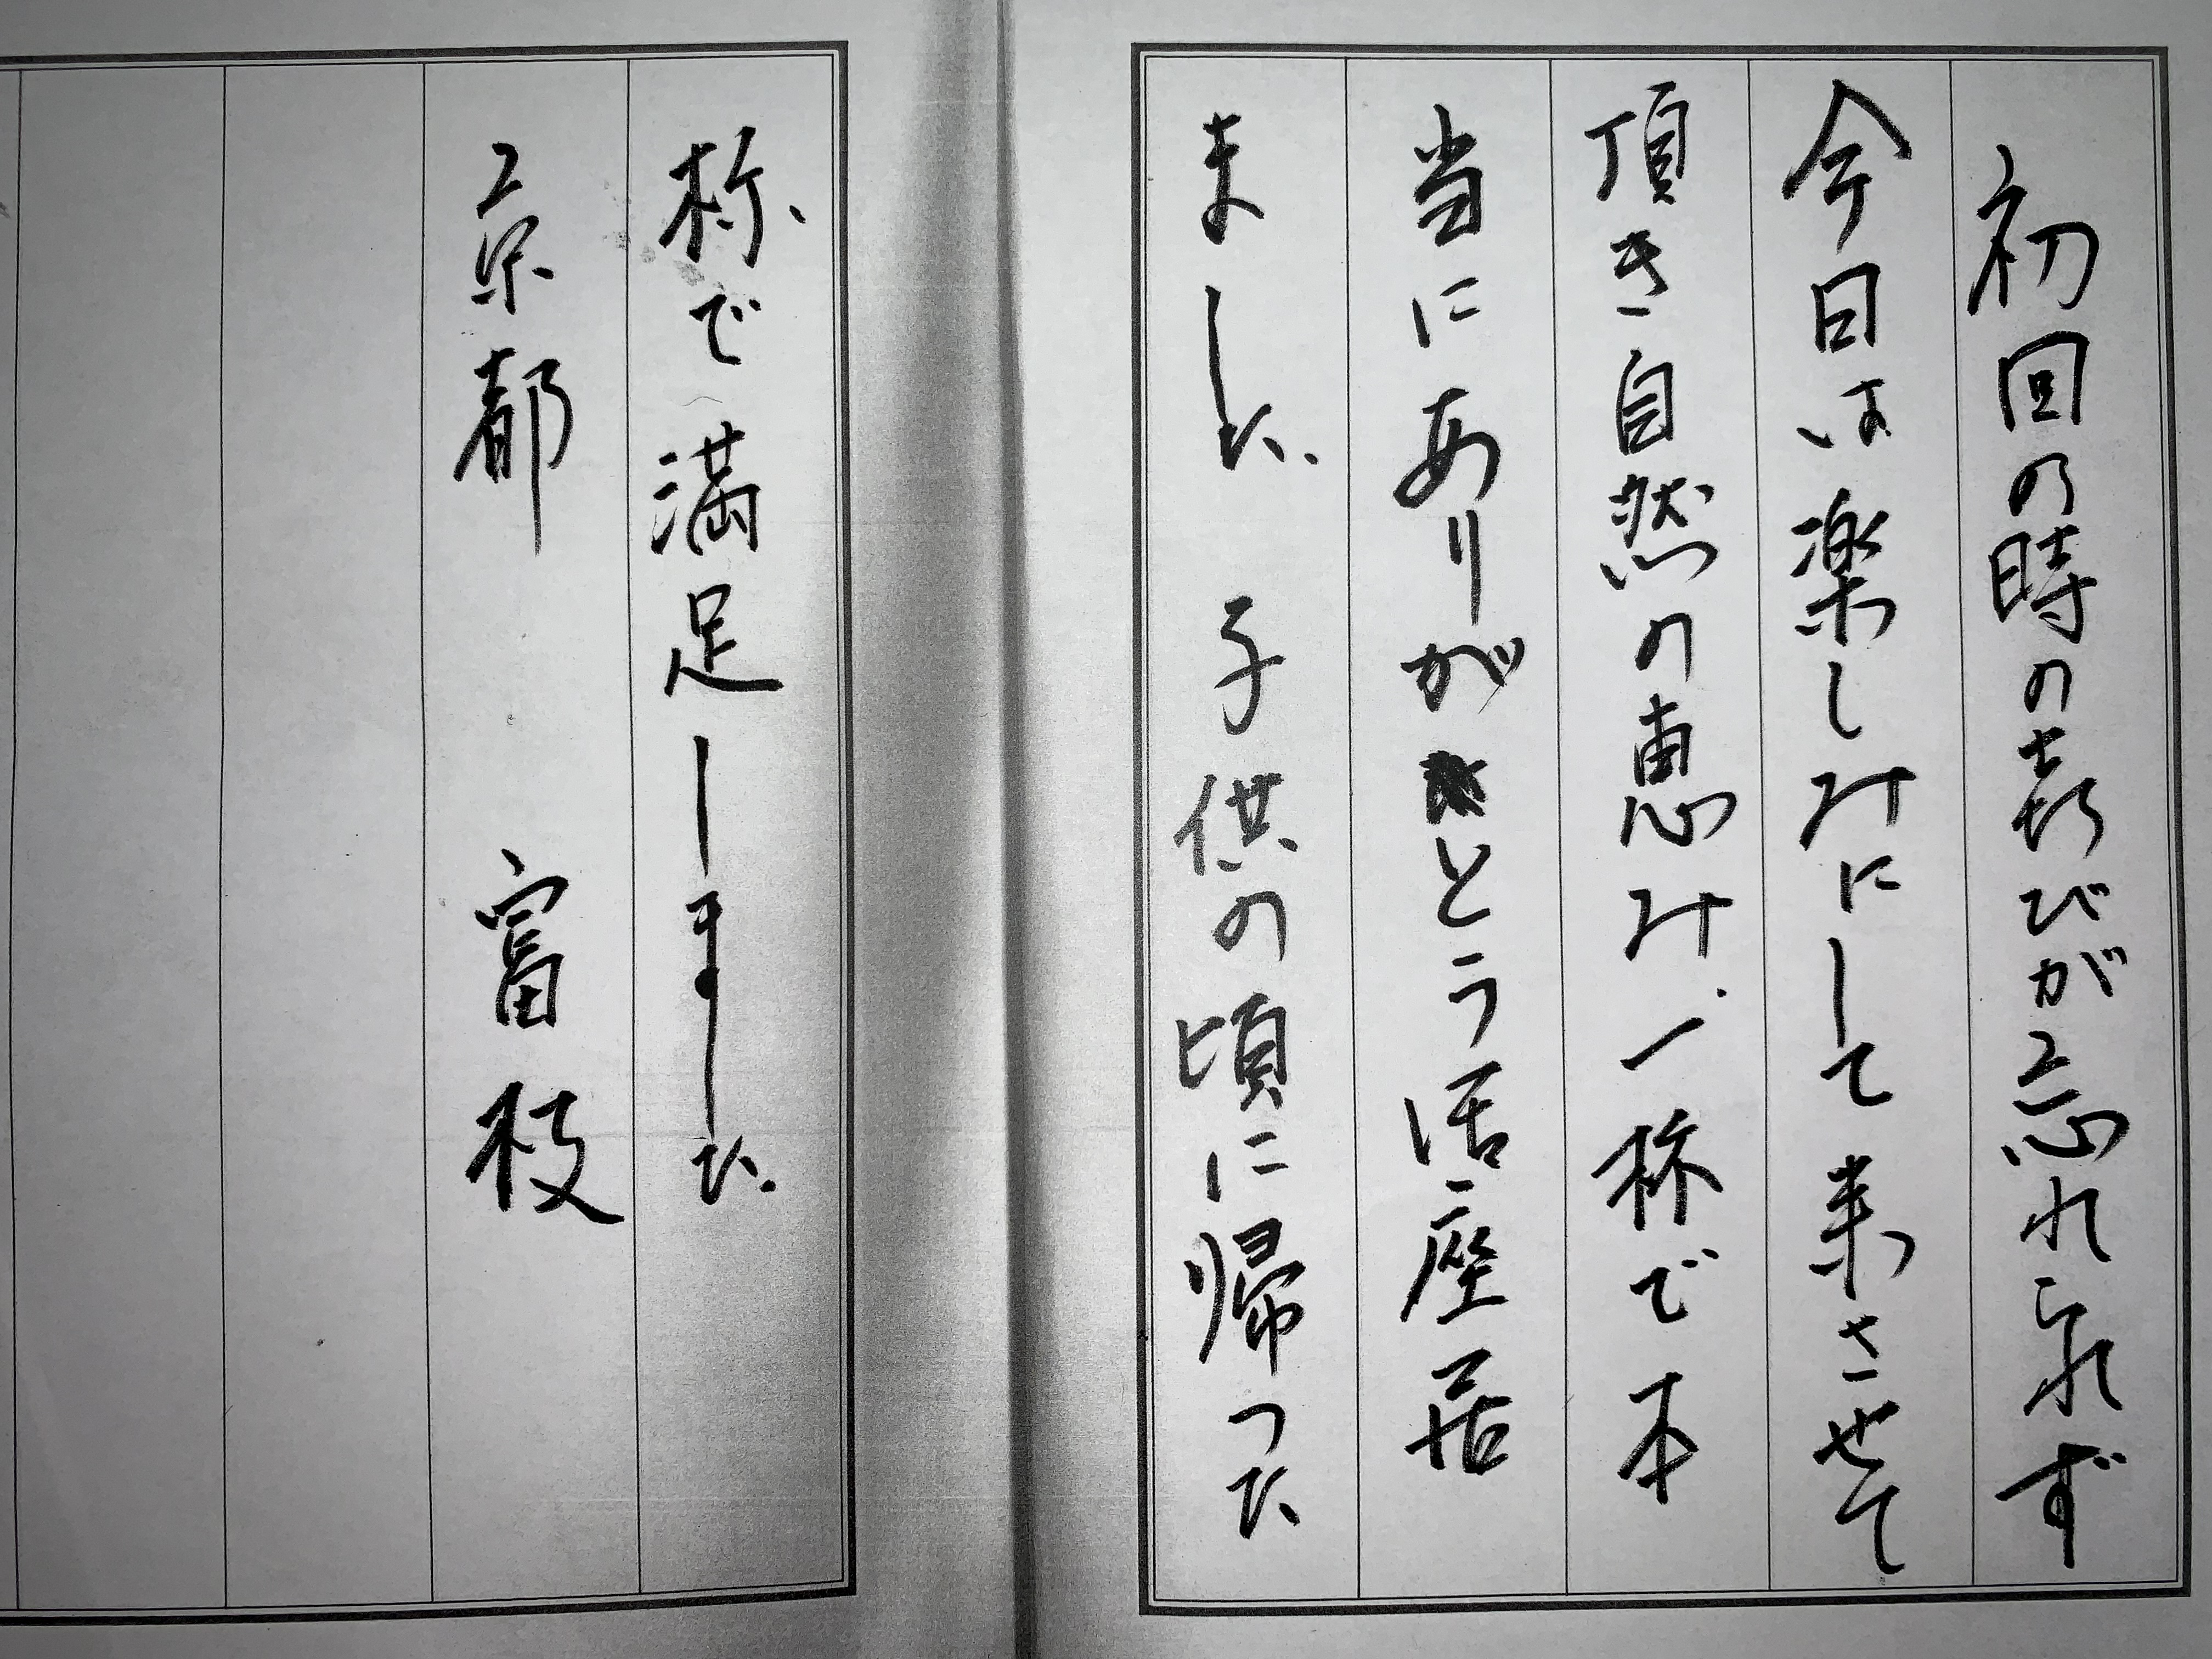 初回の時の喜びが忘れられず
今日は楽しみにして来させて
頂き自然の恵み、一杯で本
当にありがとう御座居
ました。 子供の頃に帰った
様で満足しました。
京都 富枝